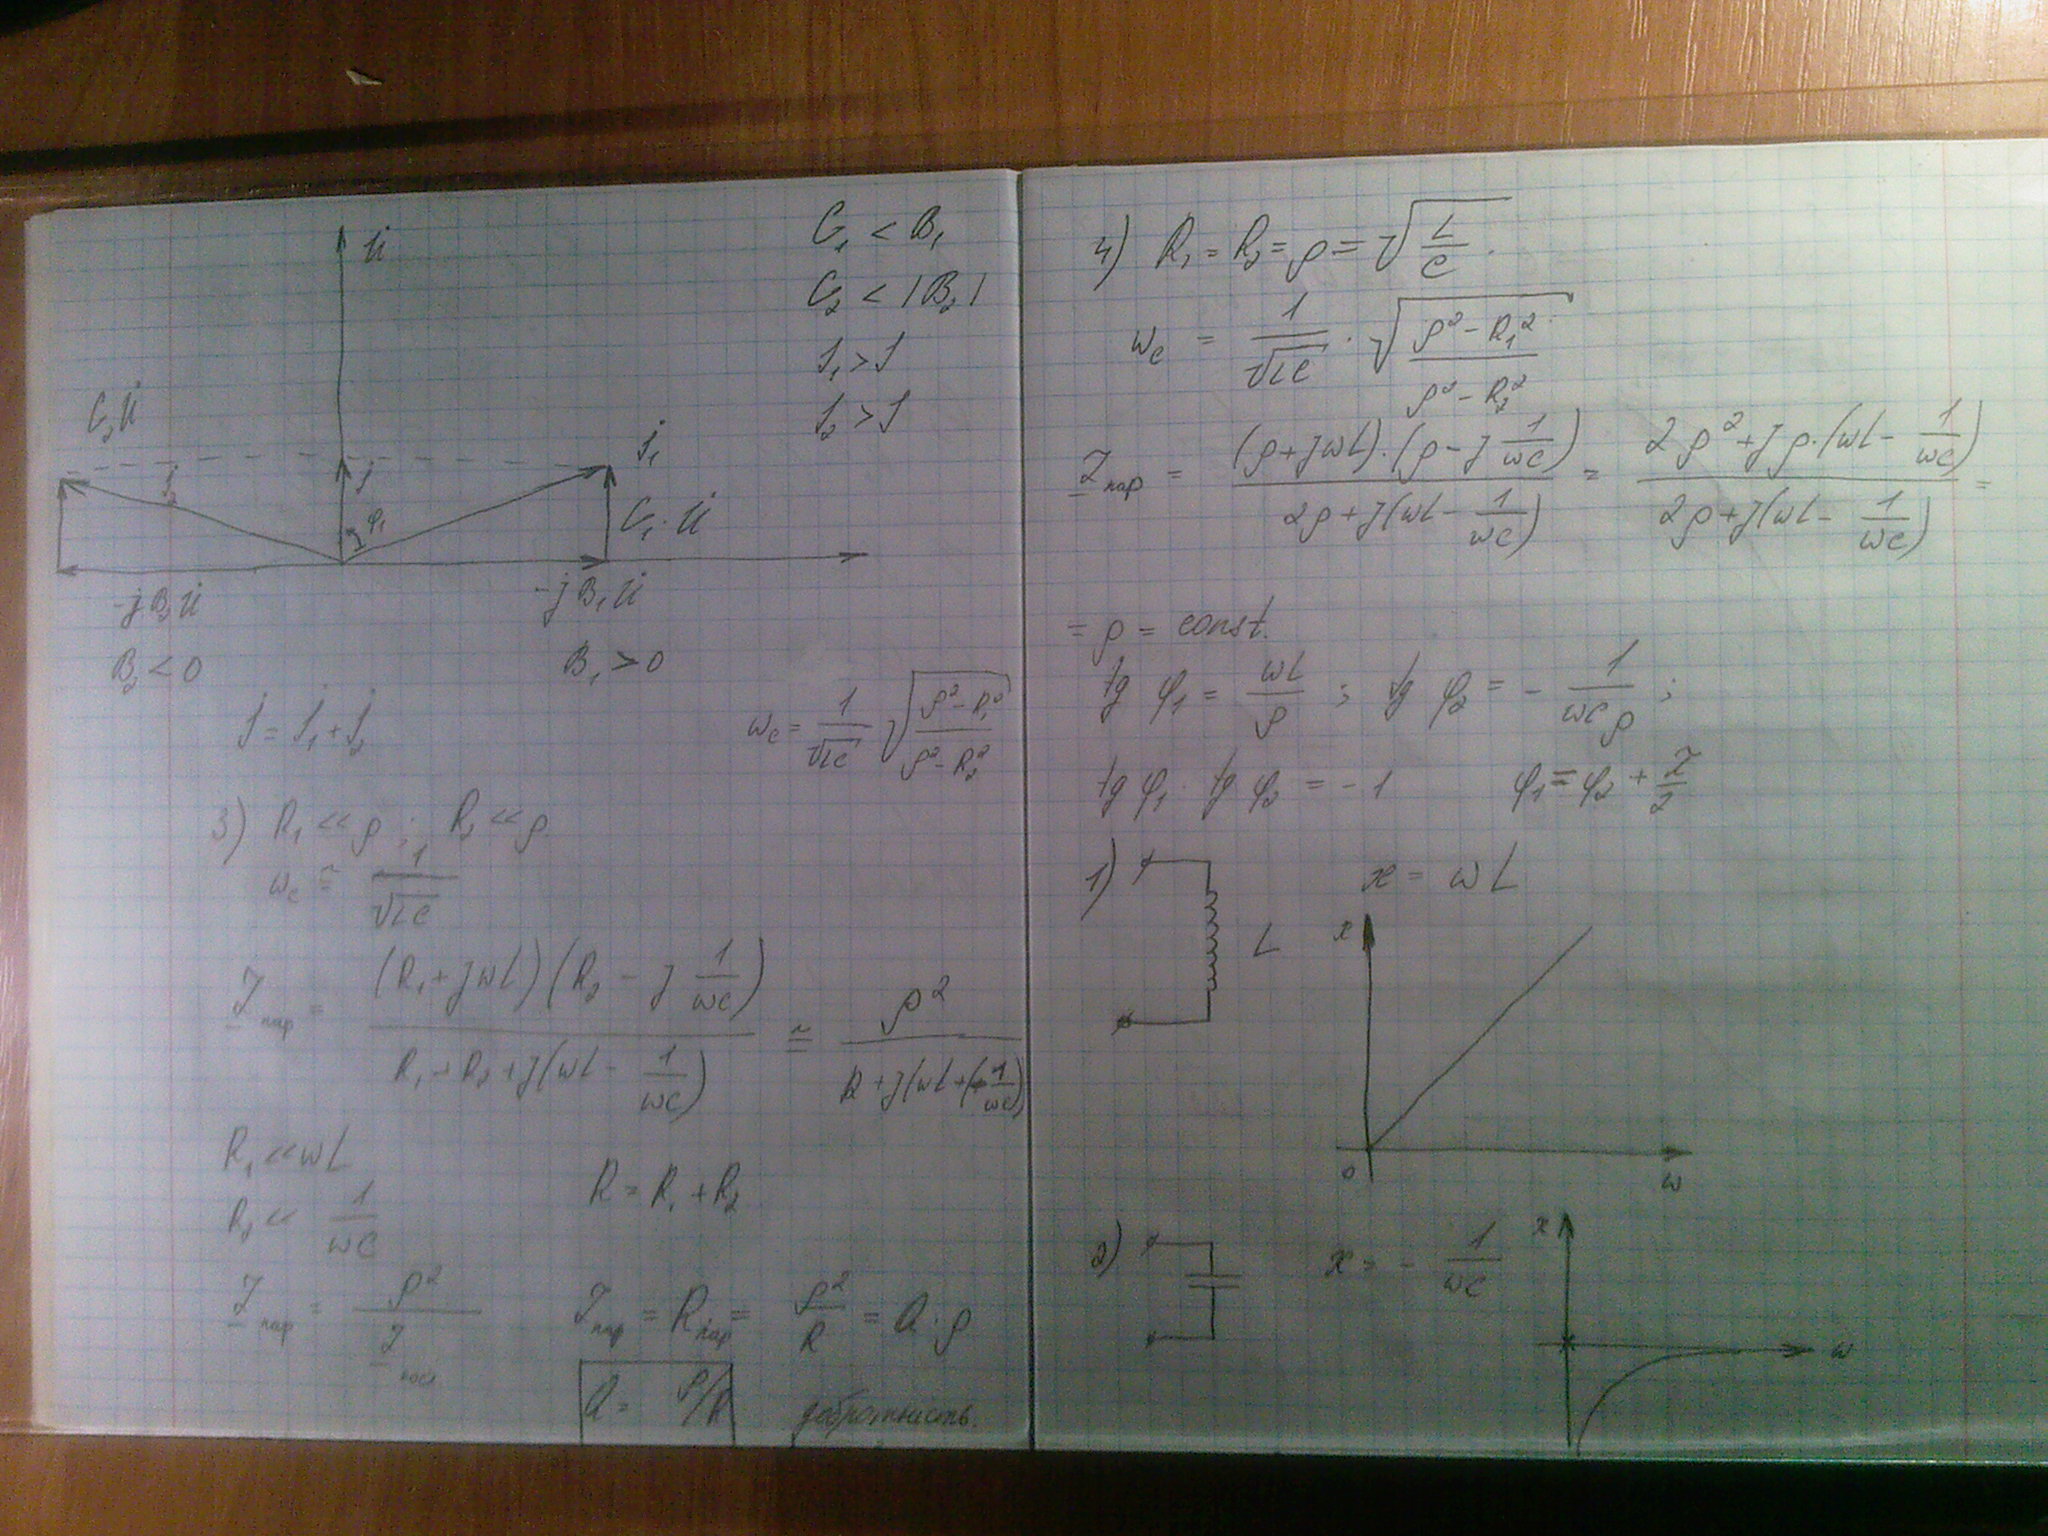 U̇
G₁ < B₁
G₂ < |B₂|
I₁ > I
I₂ > I
G₂U̇
İ₂
İ
φ₁
İ₁
G₁·U̇
-jB₂U̇
-jB₁U̇
B₂ < 0
B₁ > 0
İ = İ₁ + İ₂
ω_c = 1/√(LC) √((ρ² - R₁²)/(ρ² - R₂²))
3) R₁ << ρ ; R₂ << ρ.
ω_c ≅ 1/√(LC)
Z_пар = (R₁ + jωL)(R₂ - j 1/(ωC)) / (R₁ + R₂ + j(ωL - 1/(ωC))) ≅ ρ² / (R + j(ωL + (-1/(ωC))
R₁ << ωL
R₂ << 1/(ωC)
R = R₁ + R₂
Z_пар = ρ²/Z_посл
Z_пар = R_пар = ρ²/R = Q·ρ
Q = ρ/R
добротность.
4) R₁ = R₂ = ρ = √(L/C).
ω_c = 1/√(LC) · √((ρ² - R₁²)/(ρ² - R₂²))
Z_пар = (ρ + jωL)·(ρ - j 1/(ωC)) / (2ρ + j(ωL - 1/(ωC))) = (2ρ² + jρ·(ωL - 1/(ωC))) / (2ρ + j(ωL - 1/(ωC))) =
= ρ = const.
tg φ₁ = ωL/ρ ; tg φ₂ = - 1/(ωCρ) ;
tg φ₁ · tg φ₂ = -1 φ₁ = φ₂ + π/2
1)
L
x = ωL
x
0
ω
2)
x = - 1/(ωC)
x
ω